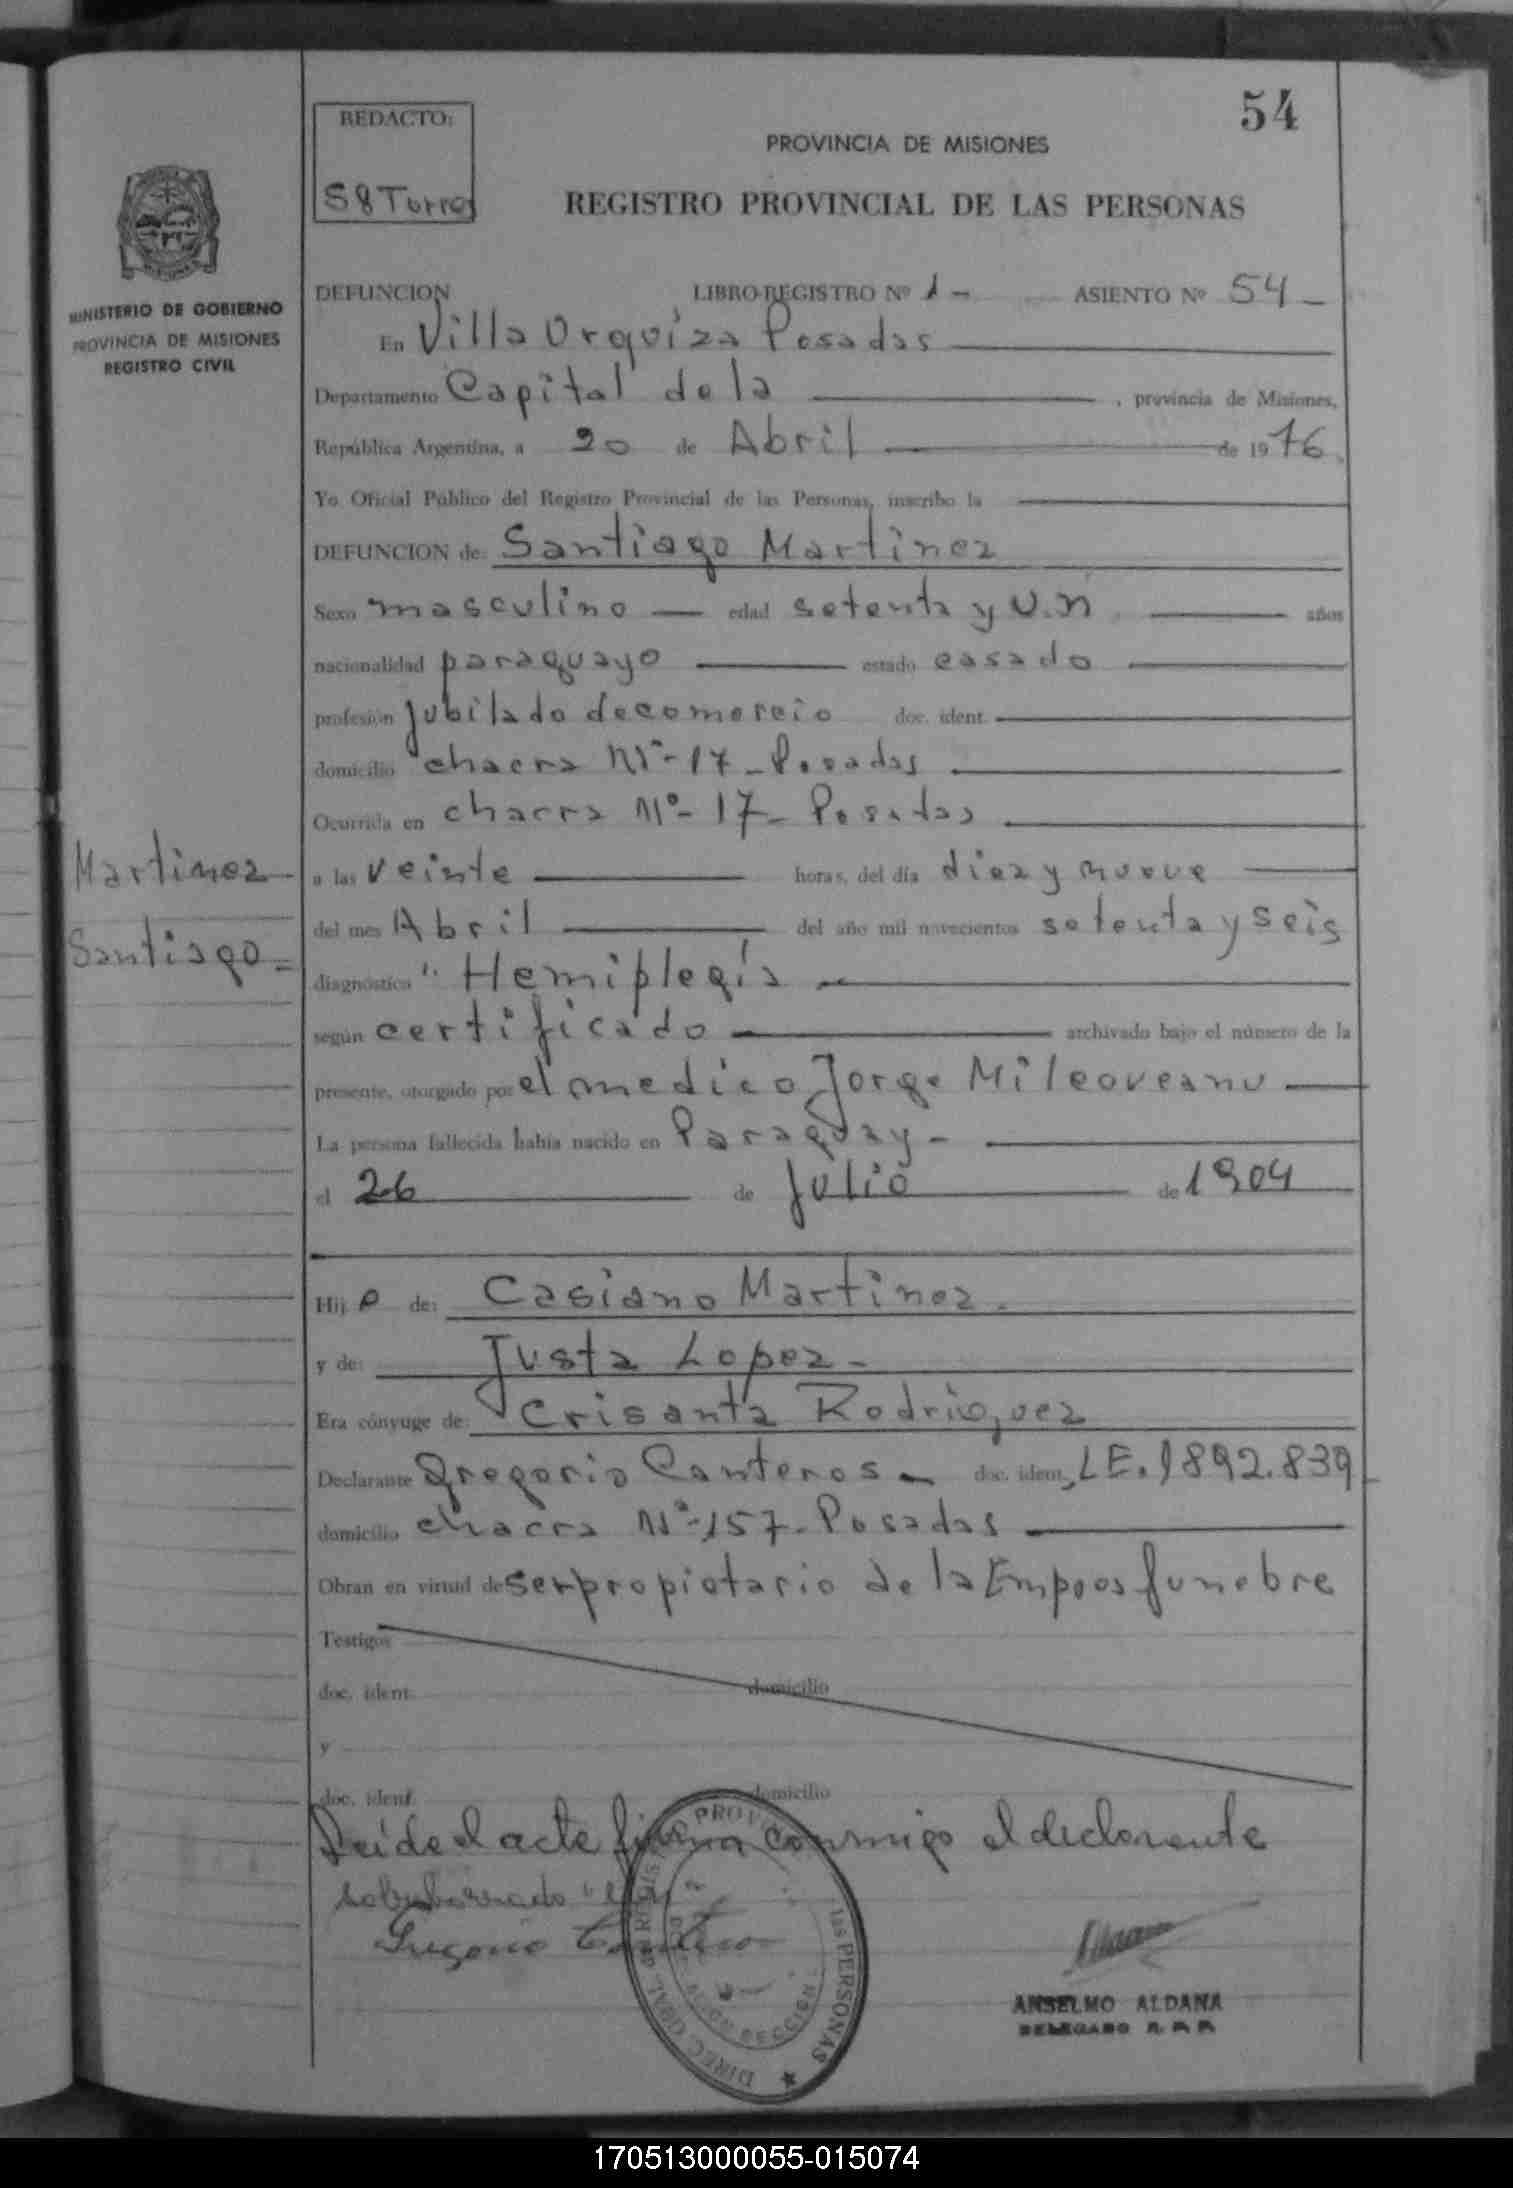 54
REDACTO:
PROVINCIA DE MISIONES
REGISTRO PROVINCIAL DE LAS PERSONAS
MINISTERIO DE GOBIERNO
PROVINCIA DE MISIONES
REGISTRO CIVIL
DEFUNCION LIBRO-REGISTRO Nº 1 - ASIENTO Nº 54 -
En Villa Urquiza Posadas
Departamento Capital de la , provincia de Misiones,
República Argentina, a 20 de Abril de 1976.
Yo Oficial Público del Registro Provincial de las Personas, inscribo la
DEFUNCION de: Santiago Martinez
Sexo masculino edad setenta y un años
nacionalidad paraguayo estado casado
profesión jubilado de comercio doc. ident.
domicilio chacra Nº-17-Posadas
Ocurrida en chacra Nº-17-Posadas
Martinez
Santiago
a las veinte horas, del día diez y nueve
del mes Abril del año mil novecientos setenta y seis
diagnóstico "Hemiplegía
según certificado archivado bajo el número de la
presente, otorgado por el medico Jorge
La persona fallecida había nacido en Paraguay-
el 26 de Julio de 1904
Hij o de: Casiano Martinez.
y de: Justa Lopez-
Era cónyuge de: Crisanta Rodriguez
Declarante Gregorio Canteros- doc. ident. LE.1892.839
domicilio chacra Nº-157-Posadas
Obran en virtud de ser propietario de la funebre
Testigos
doc. ident. domicilio
y
doc. ident. domicilio
Leída el acta firma conmigo el declarante
Gregorio Canteros
DIREC. GRAL. DEL REGISTRO PROVINCIAL
las PERSONAS
SECCION
ANSELMO ALDANA
DELEGADO R. P. P.
170513000055-015074